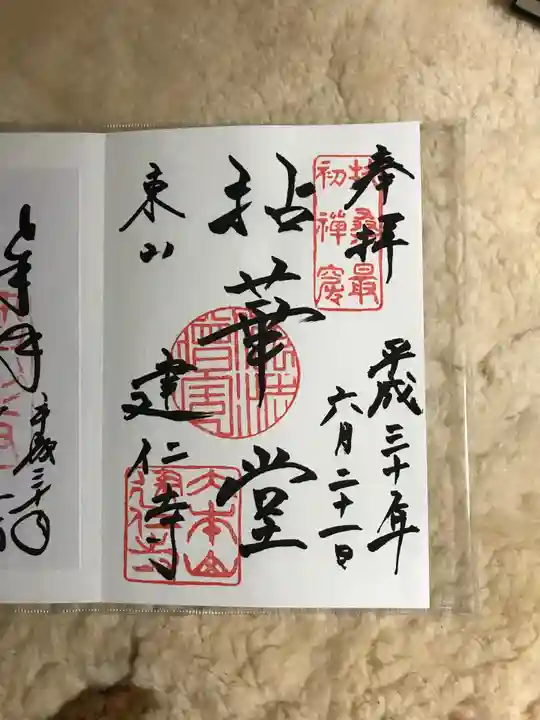 奉拝
平成三十年
六月二十一日
扶桑最
初禅窟
拈華堂
東山
建仁寺
大本山
建仁寺
平成三十年